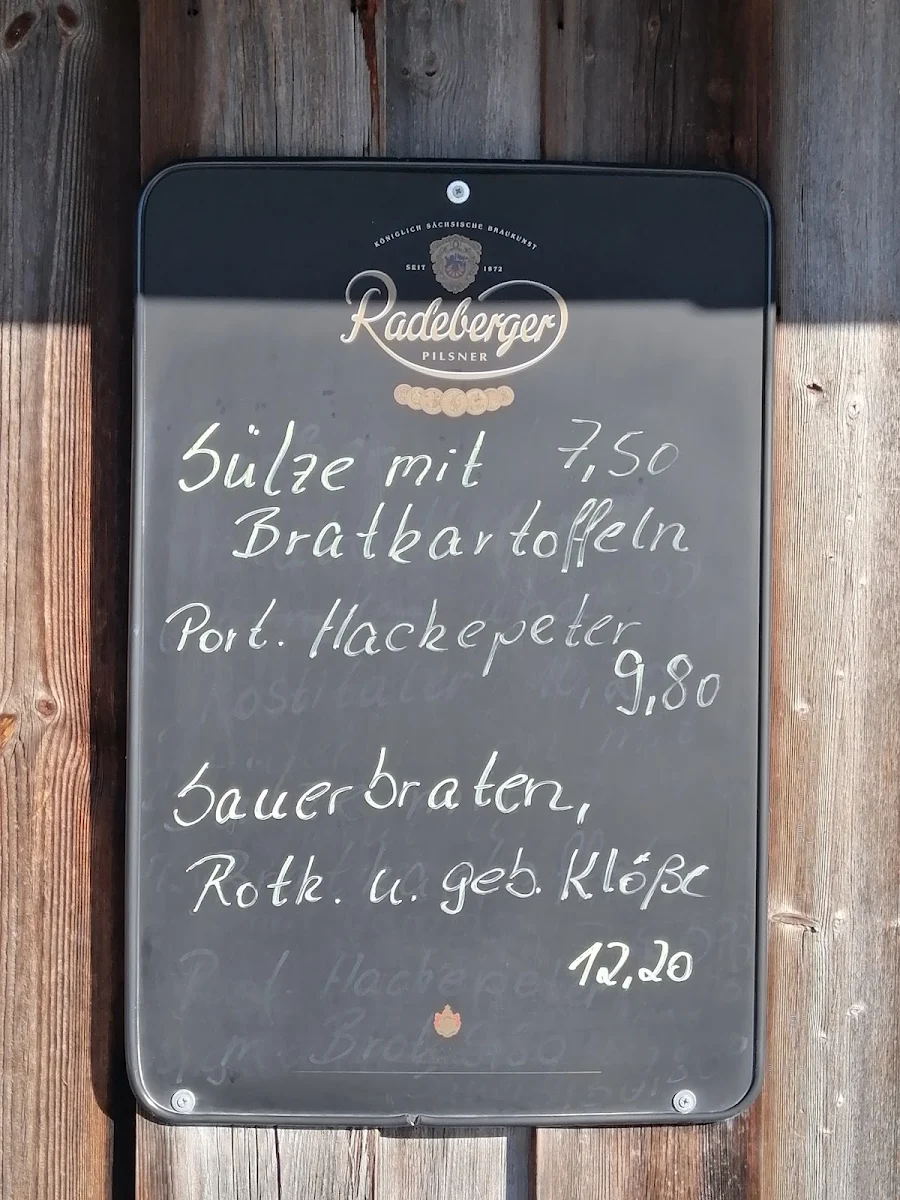 KÖNIGLICH SÄCHSISCHE BRAUKUNST
SEIT 1872
Radeberger
PILSNER
Sülze mit 7,50
Bratkartoffeln
Port. Hackepeter
9,80
Sauerbraten,
Rotk. u. geb. Klöße
12,20